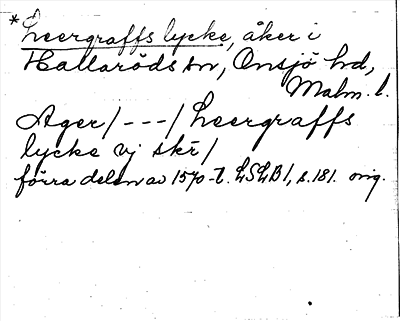 *Leergraffs lycke, åker i
Hallaröds sn, Onsjö hd,
Malm. l.
Ager/---/Leergraffs
lycke vj skr/
förra delen av 1570-t. LSLB1, s. 181. orig.